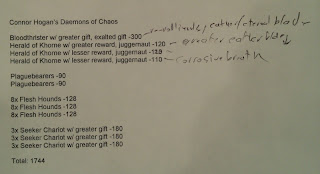 Connor Hogan's Daemons of Chaos
Bloodthirster w/ greater gift, exalted gift -300
Herald of Khorne w/ greater reward, juggernaut -120 greater etherblade
Herald of Khorne w/ lesser reward, juggernaut
Herald of Khorne w/ lesser reward, juggernaut -110 corrosive breath
Plaguebearers -90
Plaguebearers -90
8x Flesh Hounds -128
8x Flesh Hounds -128
8x Flesh Hounds -128
3x Seeker Chariot w/ greater gift -180
3x Seeker Chariot w/ greater gift -180
3x Seeker Chariot w/ greater gift -180
Total: 1744